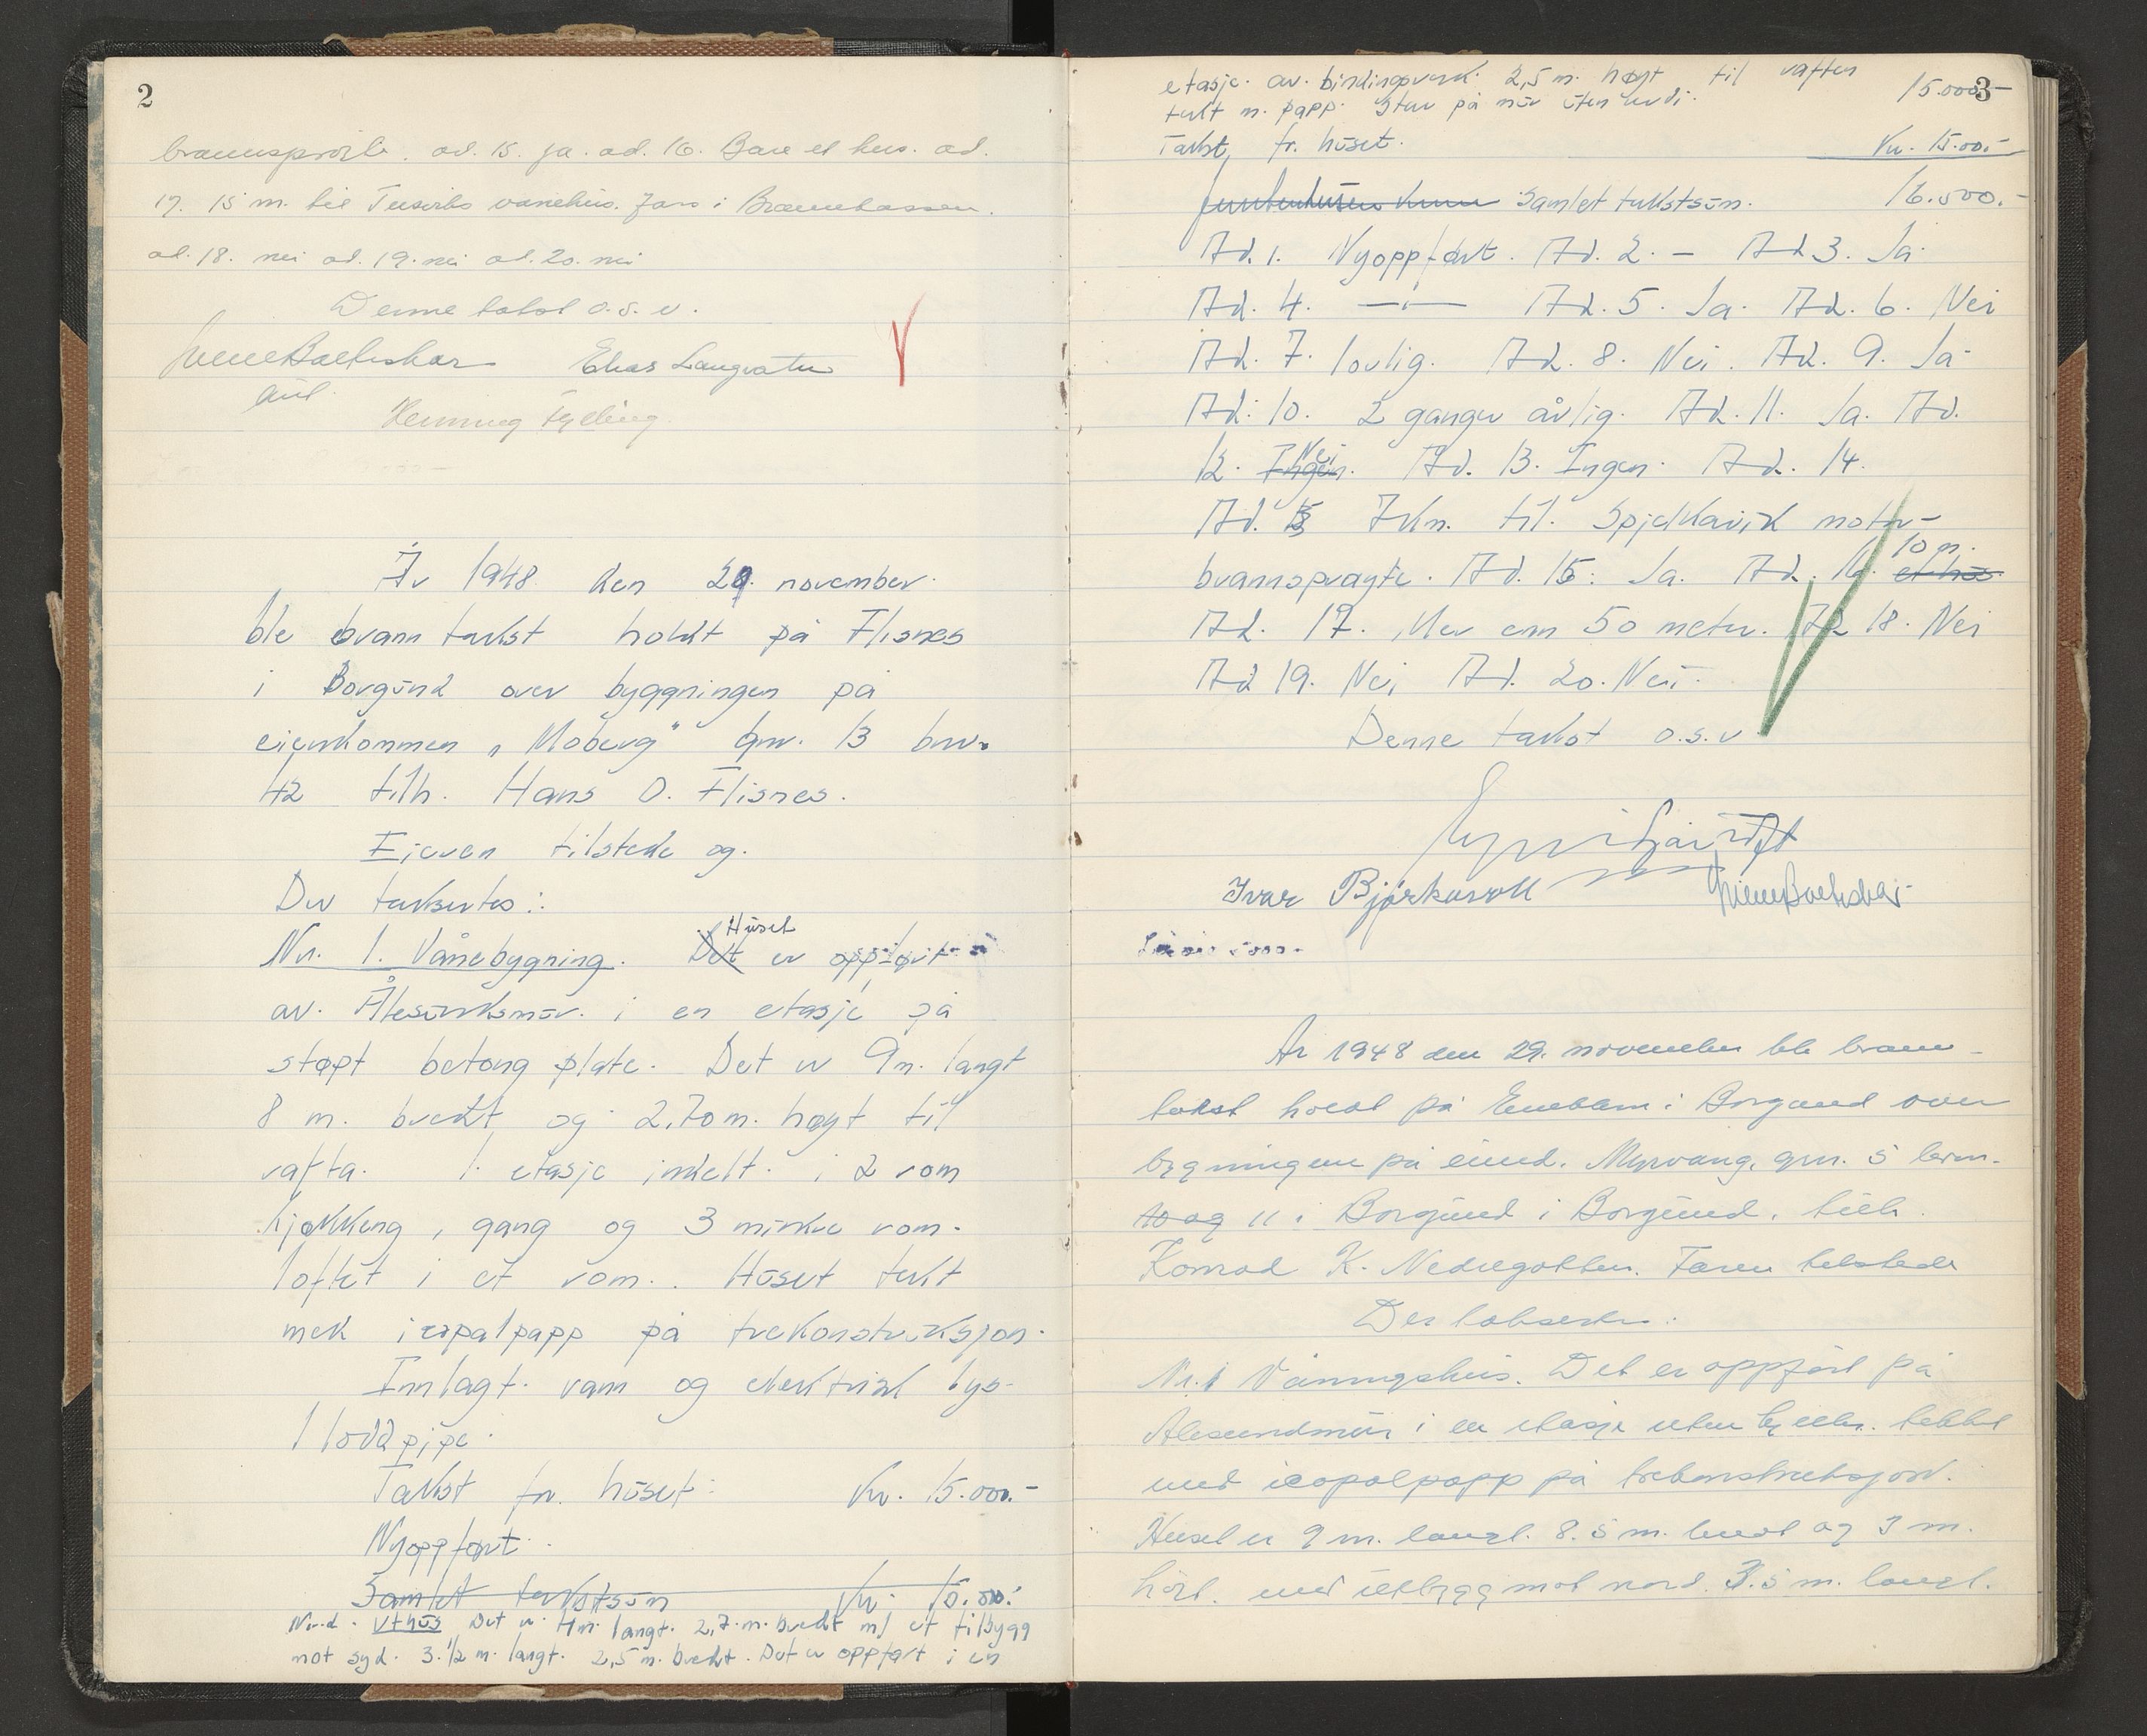 2
brannsprøite. ad. 15. ja. ad. 16. Bare et hus. ad.
17. 15 m. til vånehus. i
ad. 18. nei ad. 19. nei ad. 20. nei
Denne takst o.s.v.
Elias Langvatn
Henning Tylling
År 1948 den 29. november
ble brann takst holdt på Flisnes
i Borgund over byggningen på
eiendommen „Moberg" gnr. 13 bnr.
42 tilh. Hans O. Flisnes.
Eieren tilstede og.
Der taksertes:
Nr. 1. Vånebygning. Det Huset er oppført
av. Ålesundsmur. i en etasje på
støpt betong plate. Det er 9 m. langt
8 m. bredt og 2,70 m. høgt til
rafta. 1. etasje innelt. i 2 rom
kjøkkeng, gang og 3 mindre rom.
loftet i et rom. Huset tekt
med icopalpapp på trekonstruksjon.
Innlagt. vann og elektrisk lys.
1 lodd pipe.
Takst for huset: Kr. 15.000.-
Nyoppført.
Samlet takstsum Kr. 15.000.-
Uthus Det er 4 m. langt. 2,7 m. bredt m/ et tilbygg
mot syd. 3 1/2 m. langt. 2,5 m. bredt. Det er oppført i en
3
etasje. av. bindingsverk. 2,5 m. høgt til raften
tekt m. papp. Står på mur uten verdi. 15.000.-
Takst, for huset. Kr. 15.00.-
Samlet takstsum. 16.500.-
Ad. 1. Nyoppført. Ad. 2. — Ad 3. Ja
Ad. 4. —"— Ad. 5. Ja. Ad. 6. Nei
Ad. 7. lovlig. Ad. 8. Nei. Ad. 9. Ja
Ad. 10. 2 ganger årlig. Ad. 11. Ja. Ad.
12. Ingen. Nei Ad. 13. Ingen. Ad. 14.
Ad. 7 km. til. Spjelkavik motor-
brannsprøyte. Ad. 15. Ja. Ad. 16. et hus. 10 m.
Ad. 17. Mer enn 50 meter. Ad 18. Nei
Ad 19. Nei, Ad. 20. Nei.
Denne takst o.s.v.
Ivar Bjørkavoll
År 1948 den 29. november ble brann-
takst holdt på Emblem i Borgund over
bygningene på eiend. Myrvang, gnr. 5 brn.
10 og 11 i Borgund i Borgund, tilh.
Konrad K. Nedregotten. Faren tilstede
Der taksertes:
Nr. 1 Våningshus. Det er oppført på
Alesundmur i en etasje uten kjeller. tekket
med icopalpapp på trekonstruksjon.
Huset er 9 m. langt. 8.5 m. bredt og 3 m.
høit. med utbygg mot nord. 3.5 m. langt.